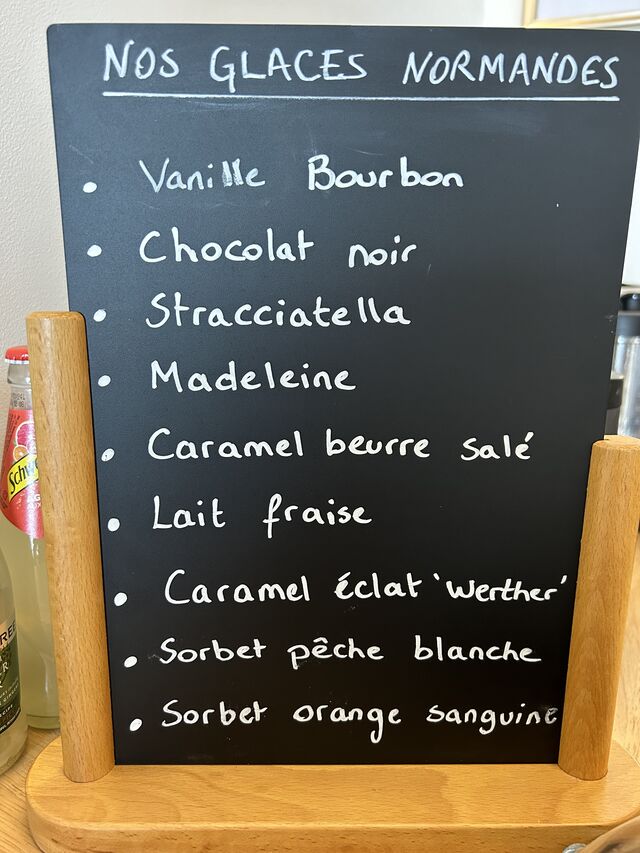 NOS GLACES NORMANDES
• Vanille Bourbon
• Chocolat noir
• Stracciatella
• Madeleine
• Caramel beurre salé
• Lait fraise
• Caramel éclat 'Werther'
• Sorbet pêche blanche
• Sorbet orange sanguine
Schw
AG